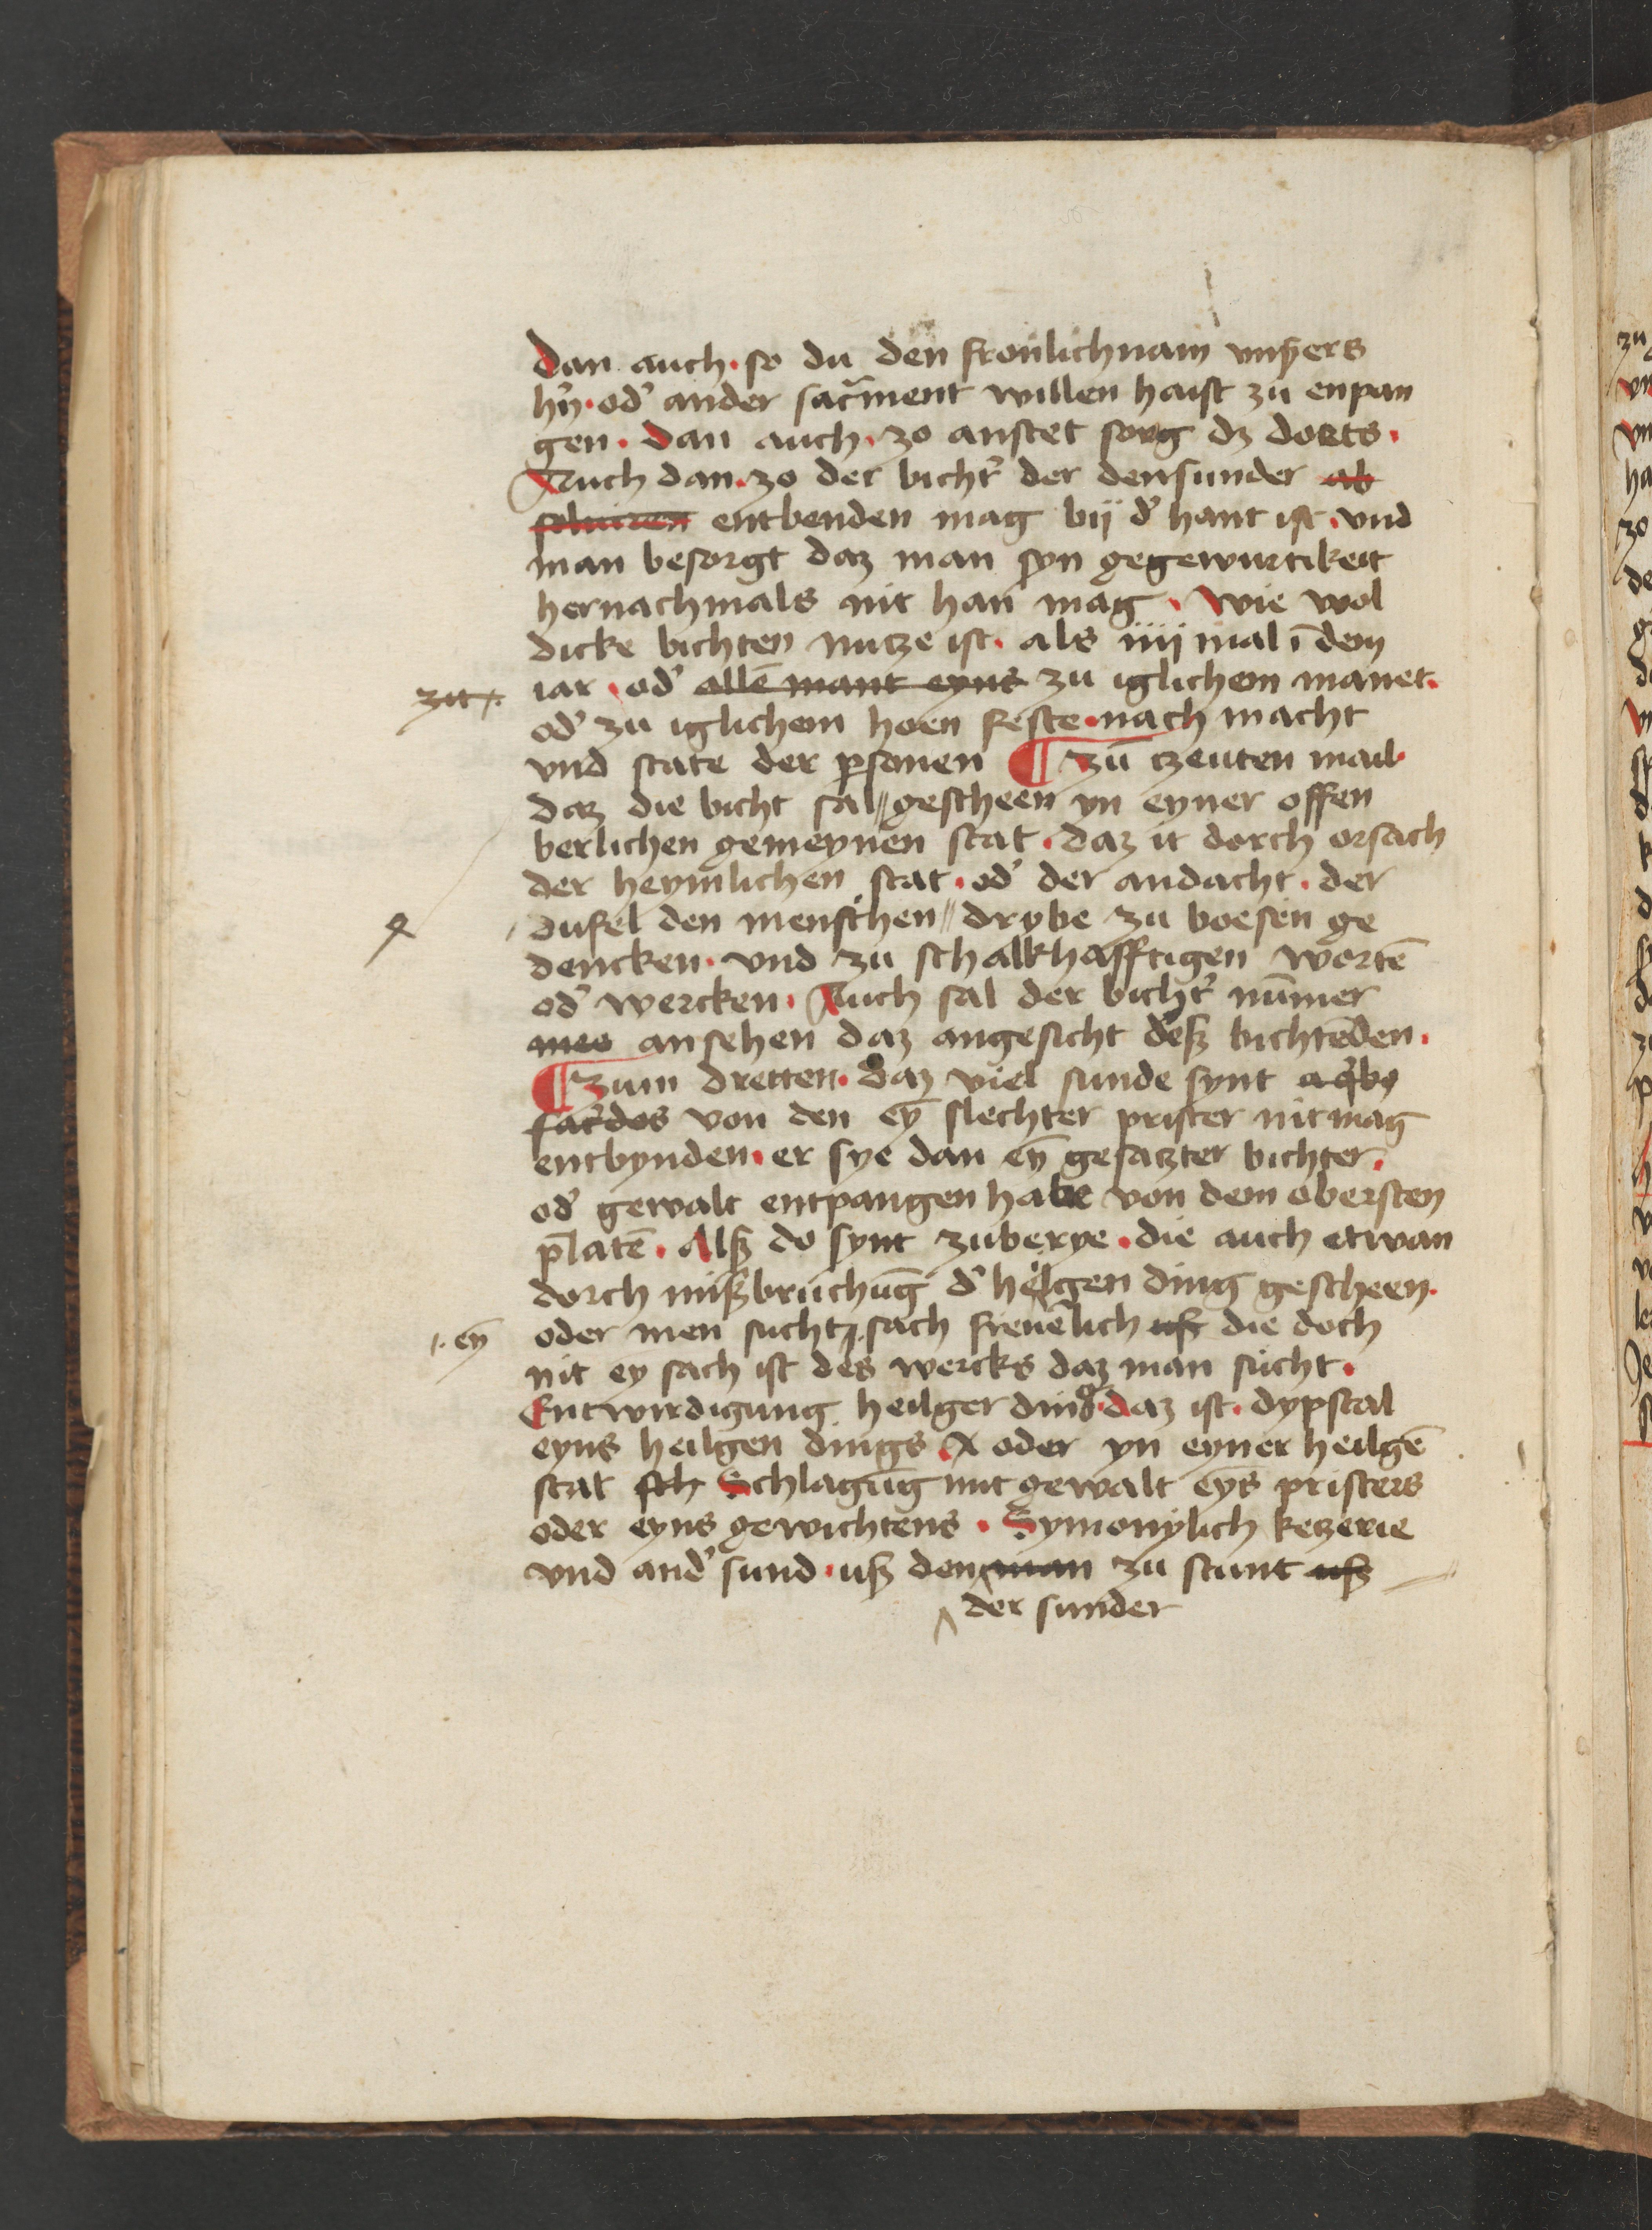 Dan auch · so du den fronlichnam vnsers
hn̄ · od' ander sacrment willen haist zu enpan
gen · Dan auch · zo anstet sorg dz dorts ·
Auch dan · zo der bicht' der den sunder ab
soluiren entbenden mag bij d' hant ist · vnd
man besorgt daz man syn gegewurtikeit
hernachmals nit han mag · Wie wol
dicke bichten nutze ist · als iiij mal ī dem
zit iar · od' allē mant eyns zu iglichem manet ·
od' zu iglichem hoen feste · nach macht
vnd state der psonen ¶ Zū tzeuten mail ·
daz die bicht sal gescheen yn eyner offen
berlichen gemeynen stat · daz it dorch orsach
der heymlichen stat · od' der andacht · der
dufel den menschen drybe zu boesen ge
dencken · vnd zu schalkhafftigen wortē
od' wercken · Auch sal der bicht' nūmer
mee ansehen daz angesicht deß bichtēden ·
¶ Zum dretten · daz viel sunde synt a qbꝰ
sac'dos von den ey slechter prister nit mag
entbynden · er sye dan eȳ gesatzter bichter ·
od' gewalt entpangen habe von dem obersten
platē · Alß do synt zuberye · die auch etwan
dorch mißbruchūg d' helgen ding gescheen ·
oder men sucht sach freuēlich uß die doch
eȳ
nit ey sach ist des wercks daz man sucht ·
Entwirdigung heilger ding · daz ist · dypstal
eyns heilgen dings oder yn eyner heilgē
stat sch Schlagūg mit gewalt eyꝰs pristers
oder eyns gewichtens · Symonylich ketzerie
vnd and' sund · uß den man zu stunt uß
der sunder